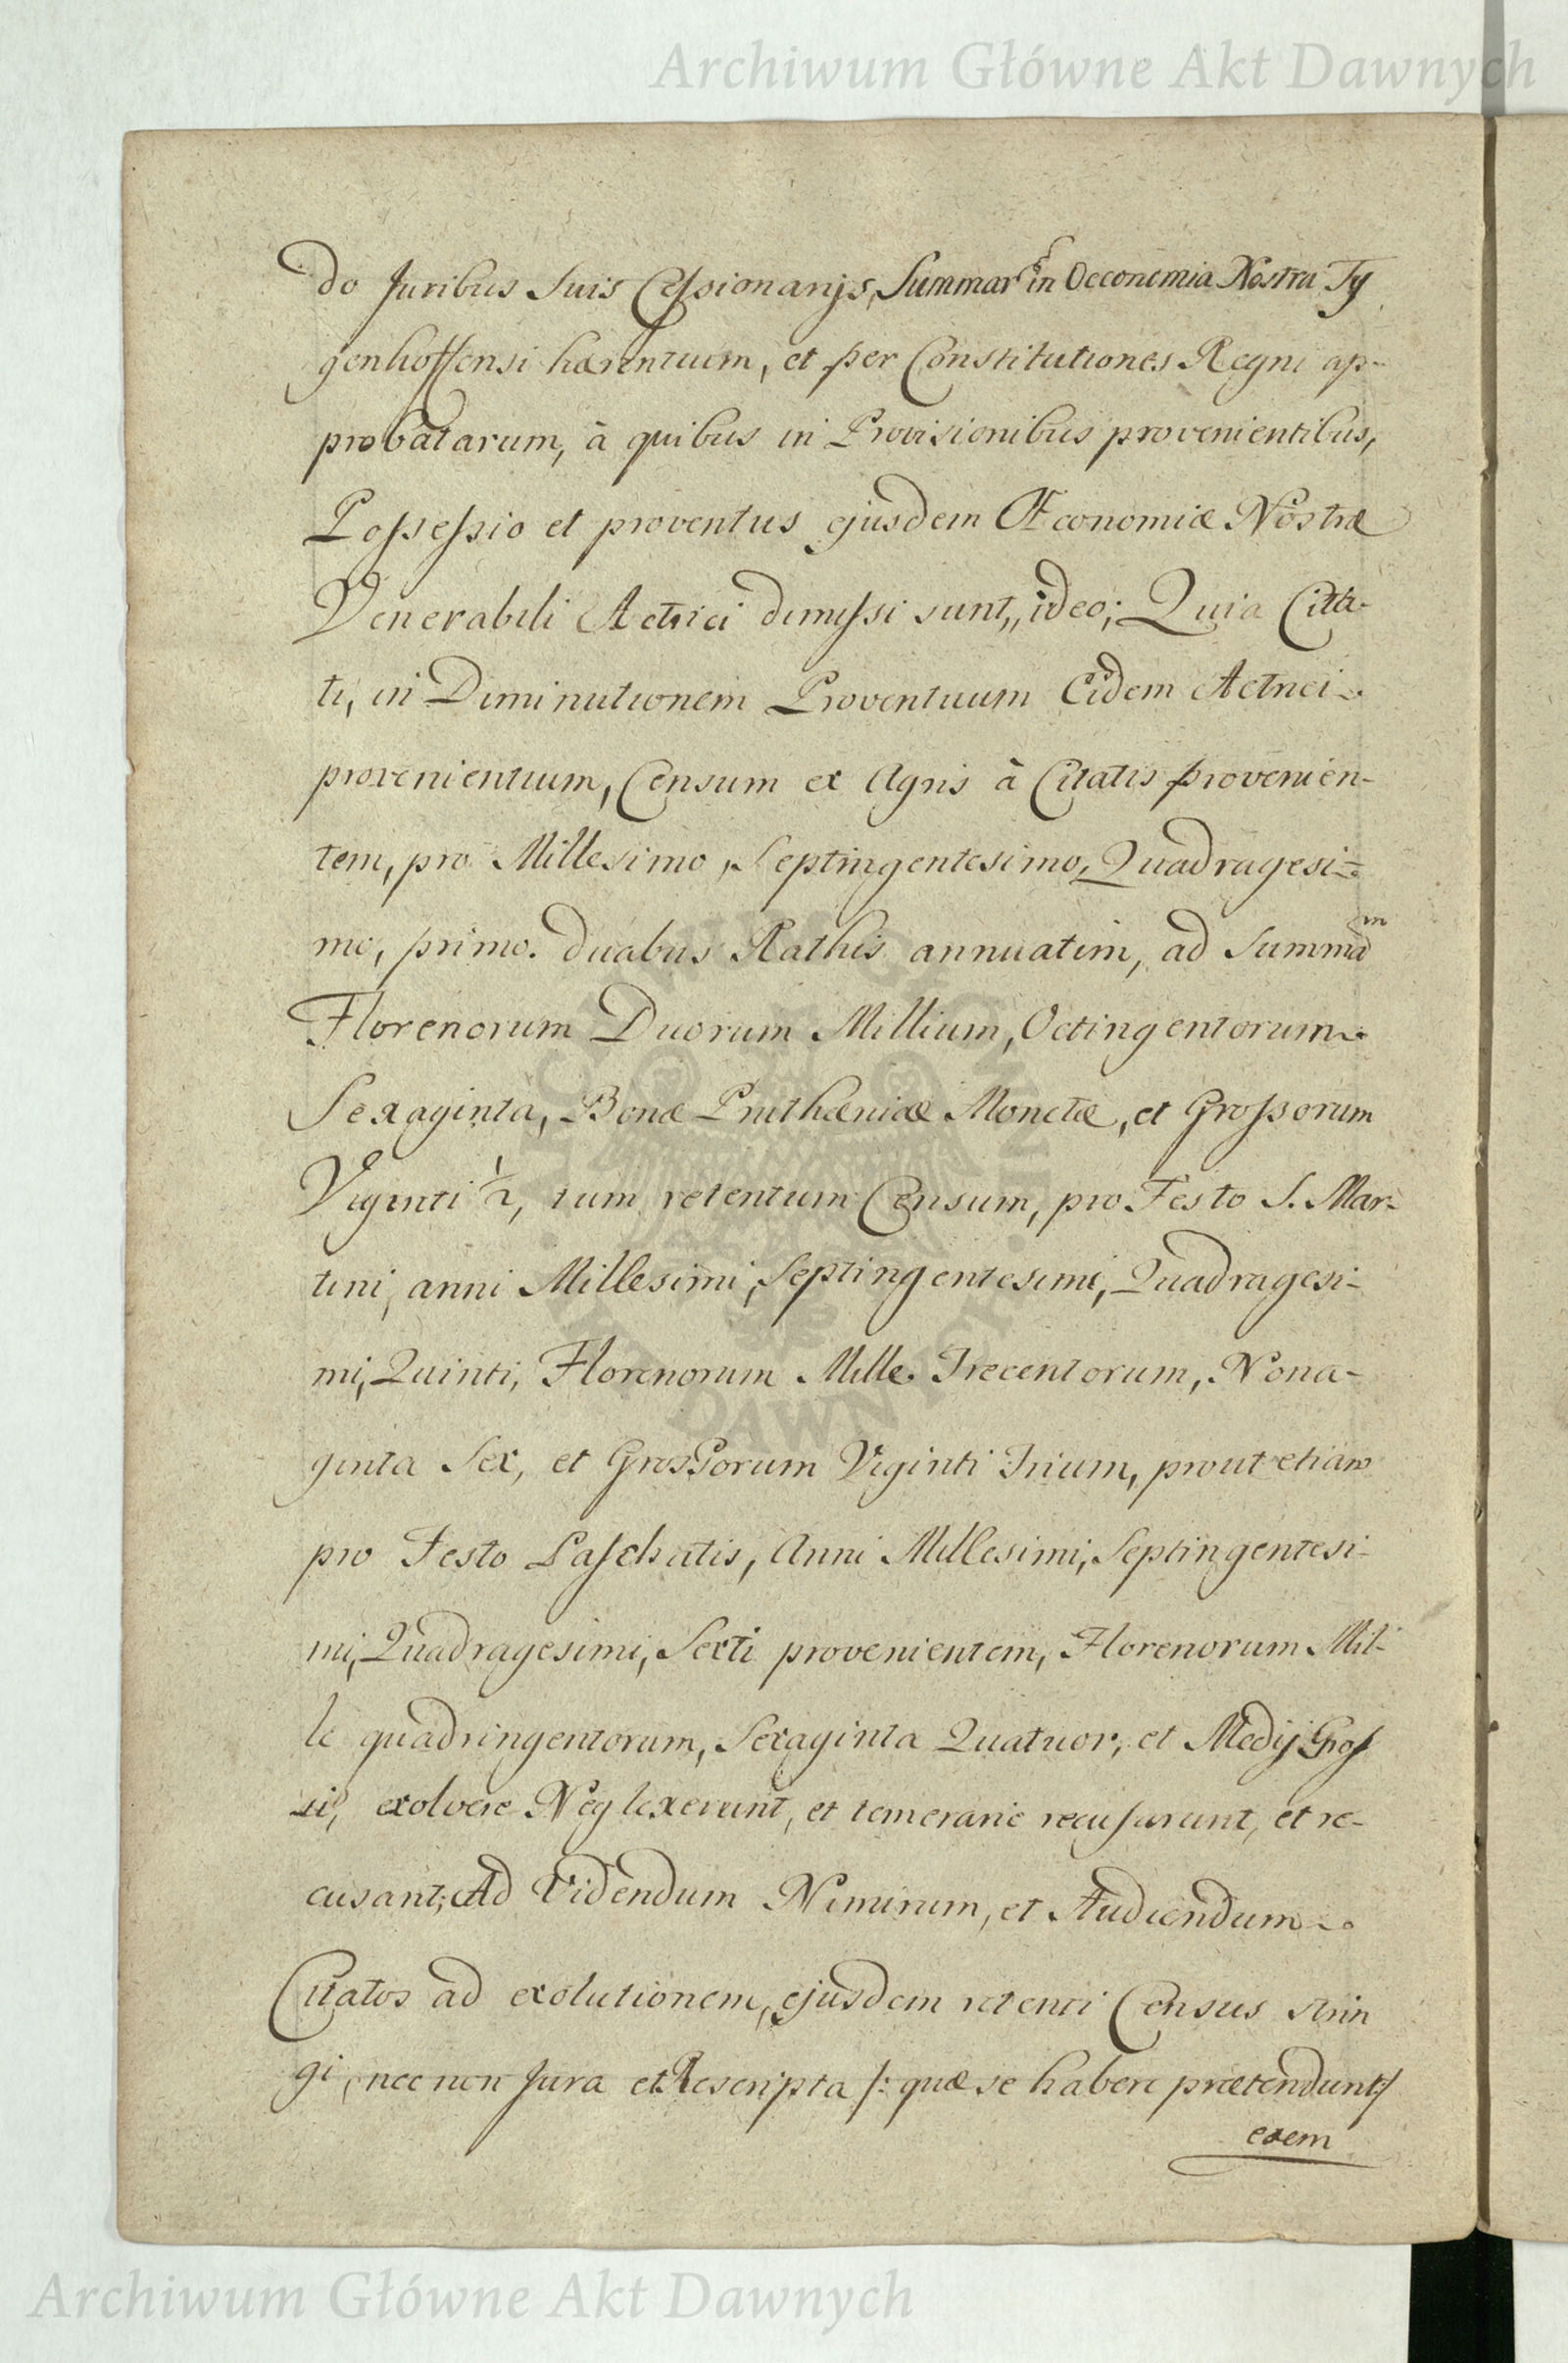 Archiwum Główne Akt Dawnych
do Juribus Suis Cessionarijs, Summar in Oeconomia Nostra Ty
genhoffensi hærentium, et per Constitutiones Regni ap-
probatarum, à quibus in Provisionibus provenientibus,
Possessio et proventus ejusdem Œconomiæ Nostræ
Venerabili Actrici dimissi sunt,, ideo; Quia Citta-
ti, in Diminutionem Proventuum Eidem Actrici
provenientium, Censum ex Agris à Citatis provenien-
tem, pro Millesimo, Septingentesimo, Quadragesi-
mo, primo. duabus Rathis annuatim, ad Summam
Florenorum Duorum Millium, Octingentorum
Sexaginta, Bonæ Pruthæniæ Monetæ, et Grossorum
Viginti ½, tum retentum Censum, pro Festo S. Mar-
tini, anni Millesimi, Septingentesimi, Quadragesi-
mi, Quinti, Florenorum Mille Trecentorum, Nona-
ginta Sex, et Grossorum Viginti Trium, prout etiam
pro Festo Paschatis, Anni Millesimi, Septingentesi-
mi, Quadragesimi, Sexti provenientem, Florenorum Mil-
le quadringentorum, Sexaginta Quatuor, et Medij Gros
si, exolvere Neglexerunt, et temerarie recusarunt, et re-
cusant; Ad Videndum Nimirum, et Audiendum
Citatos ad exolutionem, ejusdem retenti Census strin
gi, nec non Jura et Rescripta /: quæ se habere prætendunt:/
eaem
Archiwum Główne Akt Dawnych